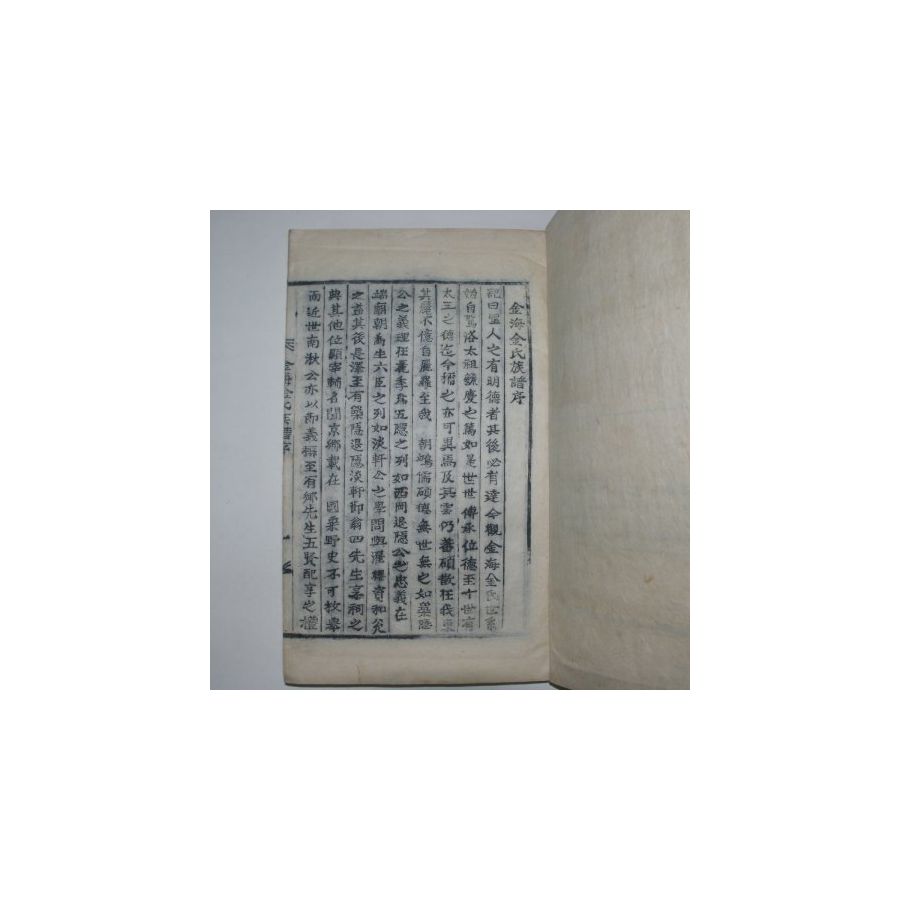 金海金氏族譜序
記曰聖人之有明德者其後必有達今觀金海金氏世系
始自駕洛太祖毓慶之篤如是世世傳承位德至十世有
太王之德迄今稱之亦可異焉及其雲仍蕃碩散在我東
其麗不億自羅至我 朝鴻儒碩德無世無之如築隱
公之義理在麗季為五隱之列如西岡退隱公之忠義在
端廟朝為生六臣之列如淡軒公之學問與濯纓寒和
之盡其後長澤至有築隱退隱淡軒節翁四先生享祠之
典其他位顯宰輔者聞京鄉載在 國乘野史不可枚舉
而近世南湫公亦以節義 至有鄉先生五賢配享之禮
金海金氏族譜序